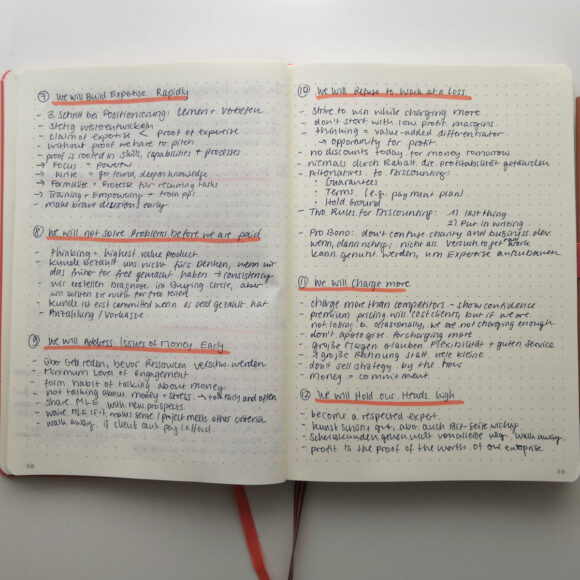 ⑦ We will Build Expertise Rapidly
- 3. Schritt bei Positionierung: Lernen + Vertiefen
- stetig weiterentwickeln
- claim of expertise < proof of expertise
- without proof we have to pitch
- proof is rooted in skills, capabilities + processes
→ Focus = powerful
→ Write = get found, deepen knowledge
→ Formalise = Prozesse für recurring tasks
→ Training + Empowering = train ppl
- make brave decisions early
⑧ We will not solve Problems before we are paid
- thinking = highest value product
- Kunde bezahlt uns nicht fürs Denken, wenn wir
das früher for free gemacht haben → consistency
- wir erstellen Diagnose im Buying Circle, aber
wir sollten sie nicht for free teilen
- Kunde ist erst committed wenn es Geld gezahlt hat
- Anzahlung / Vorkasse
⑨ We will Address Issues of Money Early
- über Geld reden, bevor Ressourcen verschw. werden
- Minimum Level of Engagement
- form habit of talking about money
- not talking about money = stress → talk early and often
- share MLE with new prospects
- waive MLE if it makes sense / project meets other criteria
- walk away if client can't pay / afford
38
⑩ We Will Refuse to Work at a Loss
- strive to win while charging more
- don't start with low profit margins
- thinking = value-added differentiator
→ opportunity for profit
- no discounts today for money tomorrow
- niemals durch Rabatt die Profitabilität gefährden
- Alternatives to Discounting:
· Guarantees
· Terms (e.g. payment plan)
· Hold Ground
- Two Rules for Discounting: 1) last thing
2) Put in writing
- Pro Bono: don't confuse charity and business dev
wenn, dann richtig, nicht als Versuch to get work
kann genutzt werden, um Expertise aufzubauen
⑪ We will Charge more
- charge more than competitors - show confidence
- premium pricing will cost clients, but if we are
not losing b. occasionally, we are not charging enough
- don't apologize for charging more
- große Margen erlauben Flexibilität + guten Service
- 1 große Rechnung statt viele kleine
- don't sell strategy by the hour
- Money = commitment
⑫ We will Hold Our Heads High
- become a respected expert
- Kunst schön + gut, aber auch Biz-Seite wichtig
- walk away
- profit is the proof of the worth of our enterprise
39